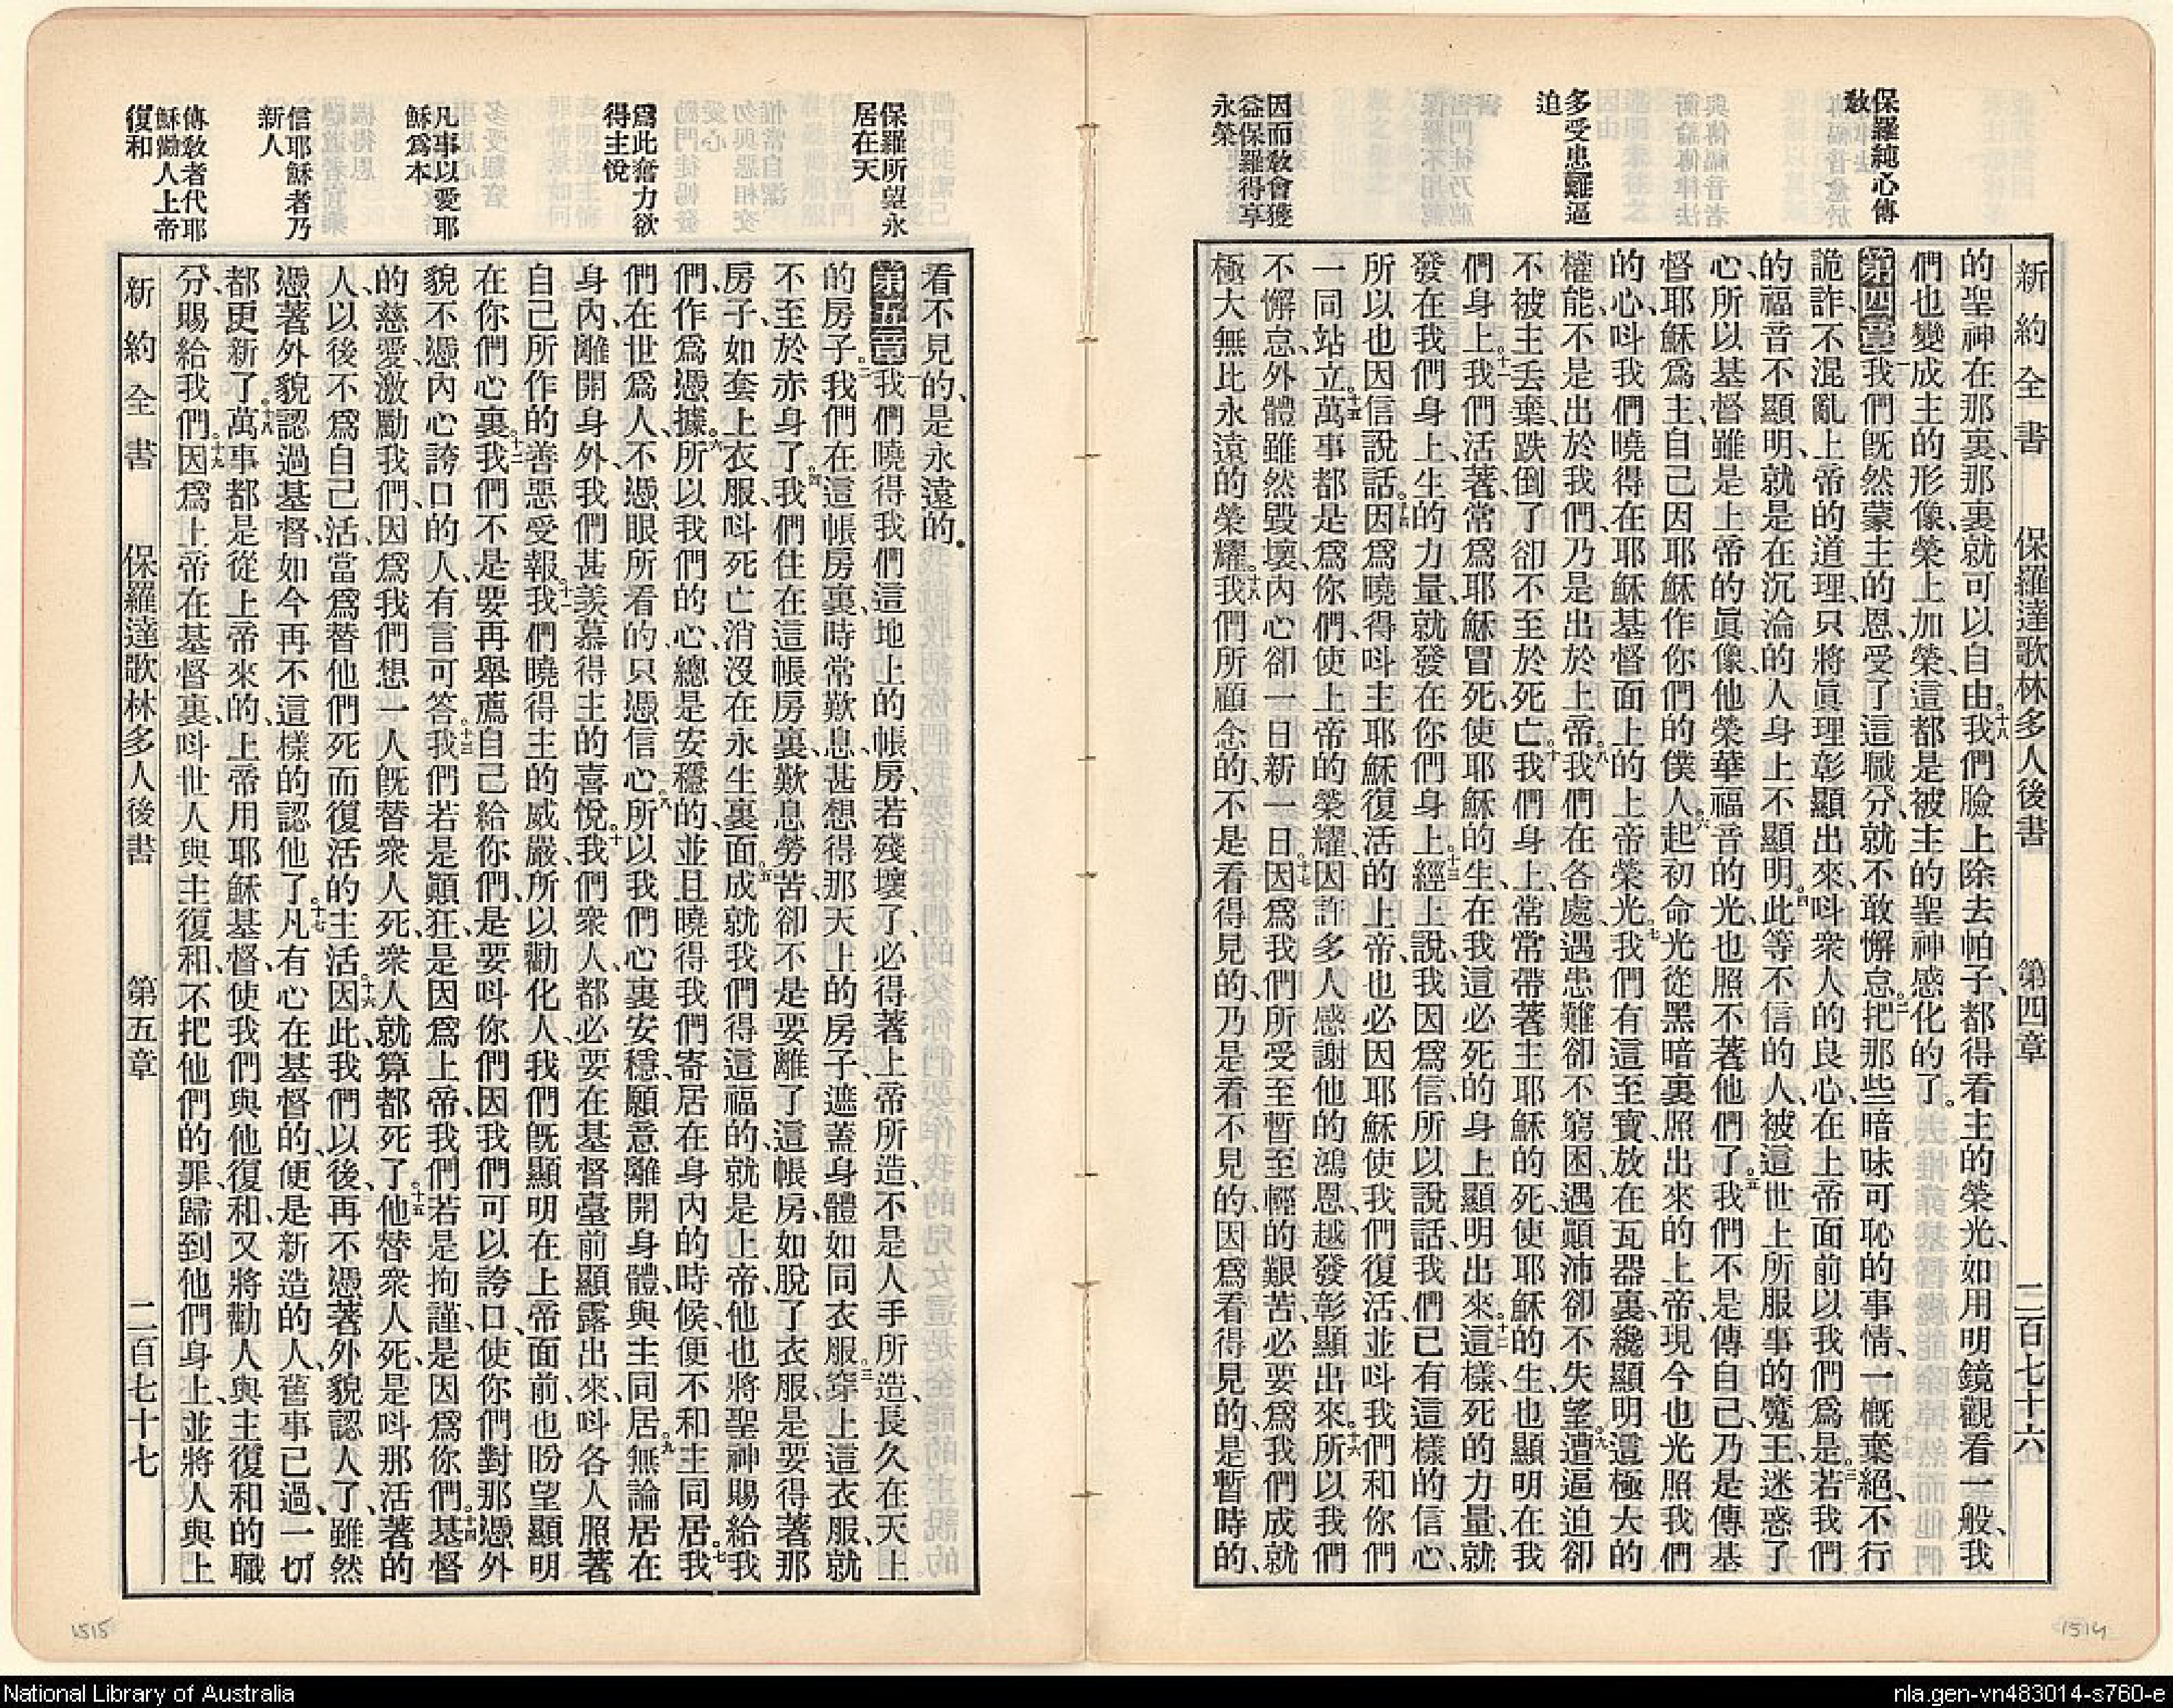 保羅純心傳
敎
多受患難逼
迫
因而敎會獲
益保羅得享
永榮
新約全書 保羅達歌林多人後書 第四章 二百七十六
的聖神在那裏、那裏就可以自由。十八我們臉上除去帕子、都得看主的榮光、如用明鏡觀看一般、我
們也變成主的形像、榮上加榮、這都是被主的聖神感化的了。
第四章一我們旣然蒙主的恩、受了這職分、就不敢懈怠。二把那些暗昧可恥的事情、一槪棄絕、不行
詭詐、不混亂上帝的道理、只將眞理彰顯出來、呌衆人的良心、在上帝面前以我們爲是。三若我們
的福音不顯明、就是在沉淪的人身上不顯明。四此等不信的人、被這世上所服事的魔王迷惑了
心、所以基督雖是上帝的眞像、他榮華福音的光、也照不著他們了。五我們不是傳自己、乃是傳基
督耶穌爲主、自己因耶穌作你們的僕人。六起初命光從黑暗裏照出來的上帝、現今也光照我們
的心、呌我們曉得在耶穌基督面上的上帝榮光。七我們有這至寶、放在瓦器裏、纔顯明這極大的
權能、不是出於我們、乃是出於上帝。八我們在各處、遇患難卻不窮困、遇顚沛卻不失望。九遭逼迫卻
不被主丢棄、跌倒了卻不至於死亡。十我們身上、常常帶著主耶穌的死、使耶穌的生、也顯明在我
們身上。十一我們活著、常爲耶穌冒死、使耶穌的生、在我這必死的身上顯明出來。十二這樣、死的力量、就
發在我們身上、生的力量、就發在你們身上。十三經上說、我因爲信、所以說話、我們已有這樣的信心、
所以也因信說話。十四因爲曉得呌主耶穌復活的上帝、也必因耶穌使我們復活、並呌我們和你們
一同站立。十五萬事都是爲你們、使上帝的榮耀、因許多人感謝他的鴻恩、越發彰顯出來。十六所以我們
不懈怠、外體雖然毀壞、內心卻一日新一日。十七因爲我們所受至暫至輕的艱苦、必要爲我們成就
極大無比永遠的榮耀。十八我們所顧念的、不是看得見的、乃是看不見的、因爲看得見的、是暫時的、
1514
保羅所望永
居在天
爲此奮力欲
得主悅
凡事以愛耶
穌爲本
信耶穌者乃
新人
傳敎者代耶
穌勸人上帝
復和
看不見的、是永遠的。
第五章一我們曉得我們這地上的帳房、若殘壞了、必得著上帝所造、不是人手所造、長久在天上
的房子。二我們在這帳房裏、時常歎息、甚想得那天上的房子、遮蓋身體如同衣服。三穿上這衣服、就
不至於赤身了。四我們住在這帳房裏、歎息勞苦、卻不是要離了這帳房、如脫了衣服、是要得著那
房子、如套上衣服、呌死亡消沒在永生裏面。五成就我們得這福的、就是上帝、他也將聖神賜給我
們、作爲憑據。六所以我們的心、總是安穩的、並且曉得我們寄居在身內的時候、便不和主同居。七我
們在世爲人、不憑眼所看的、只憑信心。八所以我們心裏安穩、願意離開身體、與主同居。九無論居在
身內、離開身外、我們甚羨慕得主的喜悅。十我們衆人、都必要在基督臺前顯露出來、呌各人照著
自己所作的善惡受報。十一我們曉得主的威嚴、所以勸化人、我們旣顯明在上帝面前、也盼望顯明
在你們心裏。十二我們不是要再舉薦自己給你們、是要呌你們因我們可以誇口、使你們對那憑外
貌不憑內心誇口的人、有言可答。十三我們若是顚狂、是因爲上帝、我們若是拘謹、是因爲你們。十四基督
的慈愛激勵我們、因爲我們想一人旣替衆人死、衆人就算都死了。十五他替衆人死、是呌那活著的
人、以後不爲自己活、當爲替他們死而復活的主活。十六因此我們以後再不憑著外貌認人了、雖然
憑著外貌認過基督、如今再不這樣的認他了。十七凡有心在基督的、便是新造的人、舊事已過、一切
都更新了。十八萬事都是從上帝來的、上帝用耶穌基督、使我們與他復和、又將勸人與主復和的職
分、賜給我們。十九因爲上帝在基督裏、呌世人與主復和、不把他們的罪、歸到他們身上、並將人與上
新約全書 保羅達歌林多人後書 第五章 二百七十七
1515
National Library of Australia
nla.gen-vn483014-s760-e